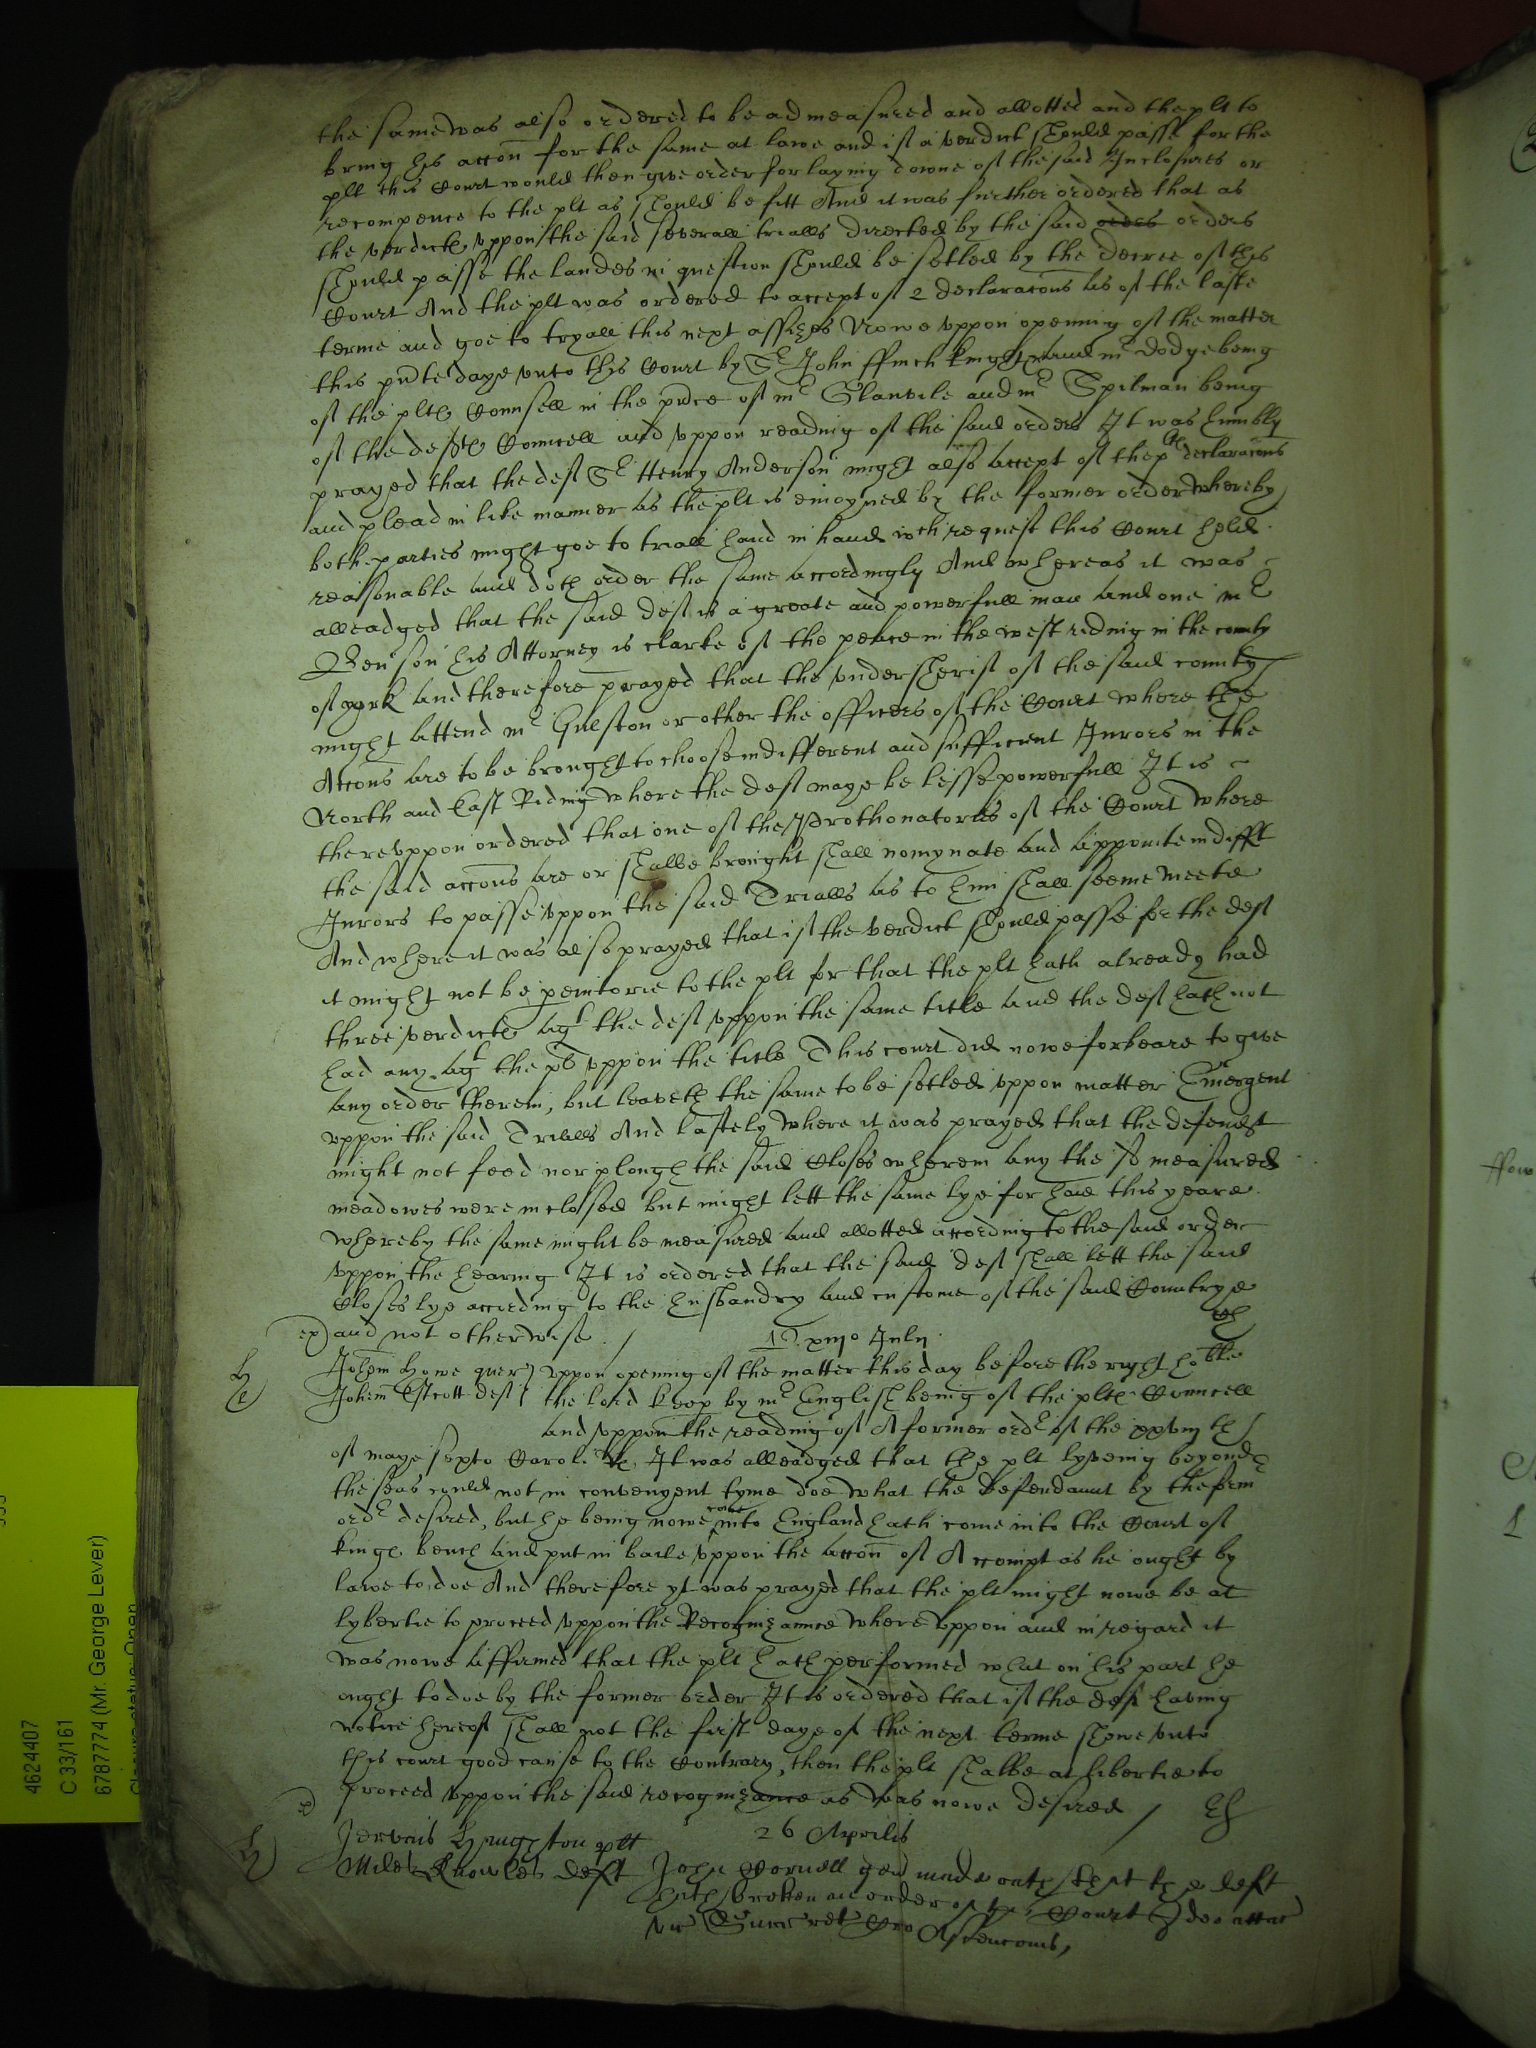 the same was also ordered to be admeasured and allotted and the plt to
bring his accon for the same at lawe and if a verdict should passe for the
plt this Court would then give order for laying downe of the said Inclosures or
recompence to the plt as should be fitt And it was further ordered that as
the verdictes uppon the said severall trialls directed by the said orders orders
should passe the landes in question should be setled by the decree of this
Court And the plt was ordered to accept of 2 declaracons as of the laste
terme and goe to tryall this next assizes Nowe uppon opening of the matter
this pnte daye unto this Court by Sr John ffinch knight and mr dodge being
of the pltes Counsell in the pnce of mr Glanvile and mr Spilman being
of the deftes Councell and uppon reading of the said orders It was humbly
prayed that the deft Sr Henry Anderson might also accept of the plts declaracons
and plead in like manner as the plt is enioyned by the former order whereby
both parties might goe to triall hand in hand wch request this Court held
reasonable and doth order the same accordingly And whereas it was
alleadged that the said deft is a greate and powerfull man and one mr
Benson his Attorney is clarke of the peace in the west riding in the county
of york and therefore prayed that the undersherif of the said county
might attend mr Gulston or other the officers of the Court where the
Accons are to be brought to choose indifferent and sufficient Jurors in the
North and East Riding where the deft maye be lesse powerfull It is
thereuppon ordered that one of the Prothonatories of the Court where
the said accons are or shalbe brought shall nomynate and appointe indifft
Jurors to passe uppon the said Trialls as to him shall seeme meete
And where it was also prayed that if the verdict should passe for the deft
it might not be pemtorie to the plt for that the plt hath already had
three verdictes agt the deft uppon the same title and the deft hath not
had any agt the plt uppon the title This court did nowe forbeare to give
any order therein, but leaveth the same to be setled uppon matter Emergent
uppon the said Trialls And lastely where it was prayed that the defendt
might not feed nor plough the said Closes wherein any the measured
meadowes were inclosed but might lett the same lye for haie this yeare
whereby the same might be measured and allotted according to the said order
uppon the hearing It is ordered that the said deft shall lett the said
Closes lye according to the husbandry and custome of the said Countrye
ex) and not otherwise /
xviijo Julij
John Howe quer uppon opening of the matter this day before the right hoble
John Estcott deft the lord keep by mr English being of the pltes Councell
and uppon the reading of A former ordr of the xxvijth
of maye sexto Caroli Rs It was alleadged that the plt lyveing beyond
the seas could not in convenyent tyme doe what the Defendaunt by the form
ordr desired, but he being nowe come into England hath come into the Court of
kings bench and put in baile uppon the accon of Accompt as he ought by
lawe to doe And therefore yt was prayed that the plt might nowe be at
lybertie to proceed uppon the Recognizaunce whereuppon and in regard it
was nowe affirmed that the plt hath performed what on his part he
ought to doe by the former order It is ordered that if the deft having
notice hereof shall not the first daye of the next terme shewe unto
this court good cause to the Contrary, then the plt shalbe at libertie to
proceed uppon the said recognizance as was nowe desired /
26 Aprilis
Jervis plt
Miles Knowles deft John Cornell gen made oath that the deft
hath broken an order of this Court Ideo attac
vic